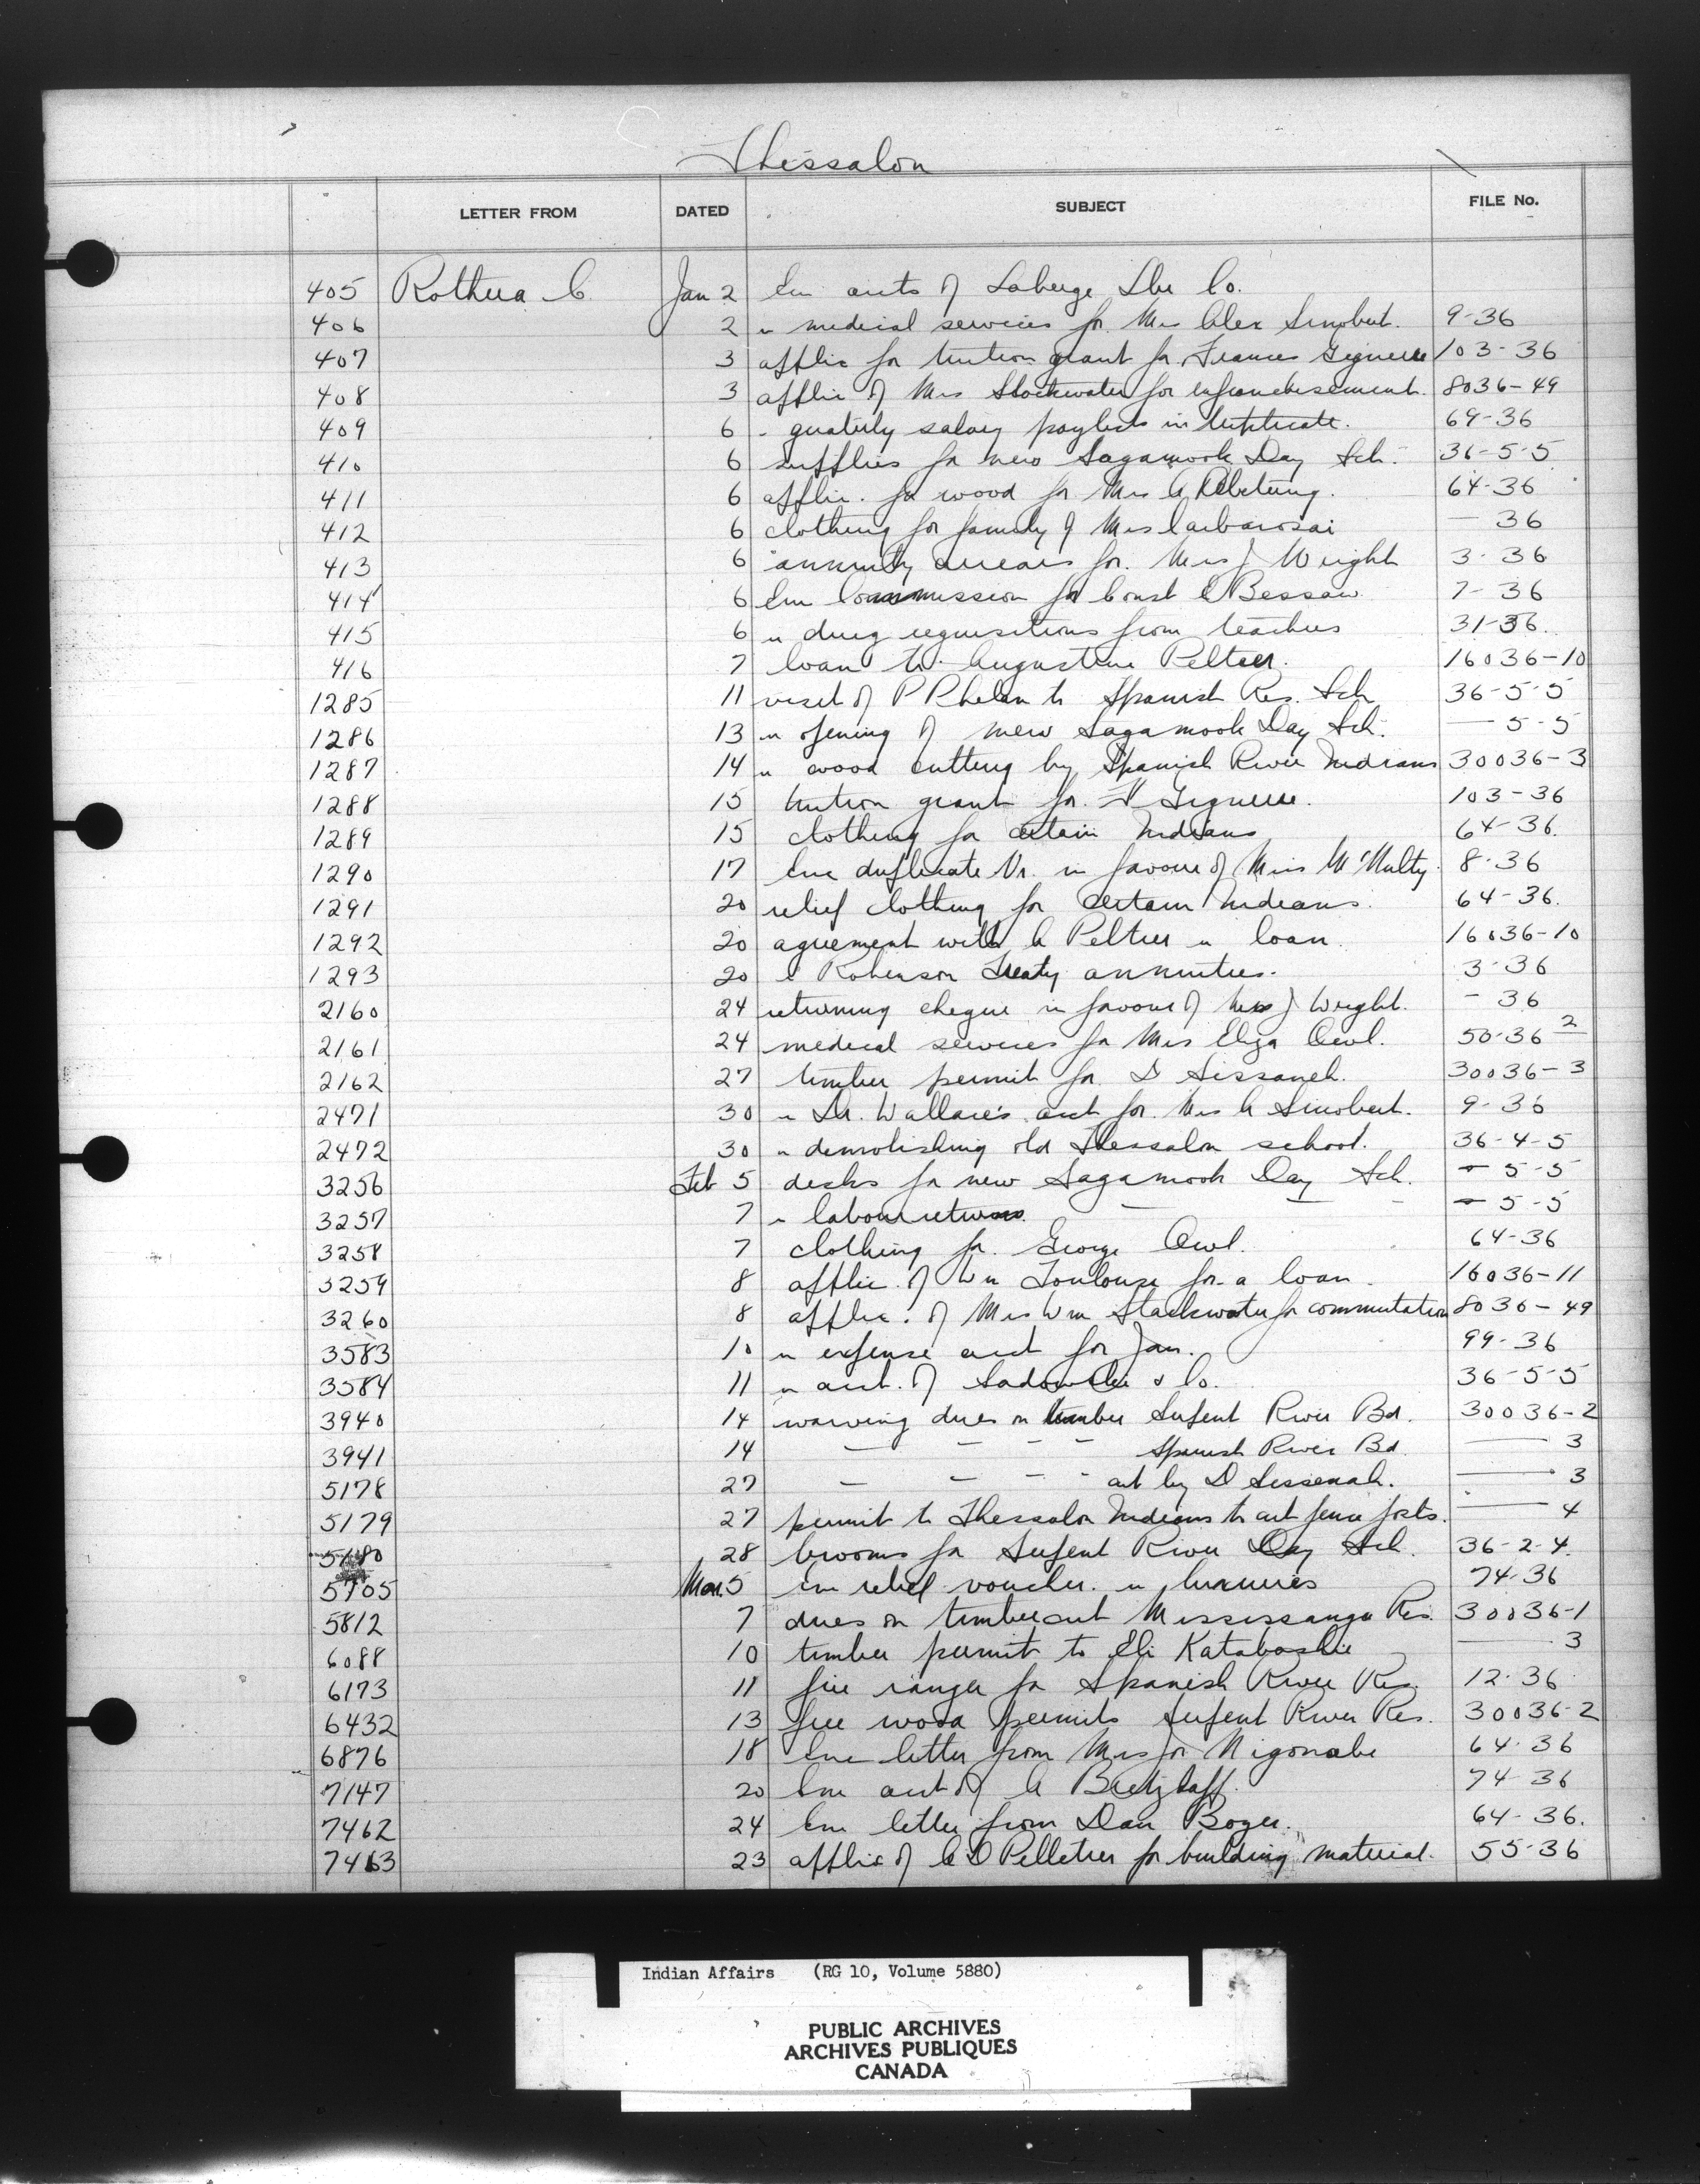 Thessalon
LETTER FROM DATED SUBJECT FILE No.
405 Rothera C Jan 2 Enc accts of Laberge Lbr Co.
406 2 " medical services for Mrs Alex Simobert. 9-36
407 3 applic for tuition grant for Frances 103-36
408 3 applic of Mrs Stockwater for enfranchisement. 8036-49
409 6 " quarterly salary paylists in triplicate. 69-36
410 6 supplies for new Sagamook Day Sch. 36-5-5
411 6 applic. for wood for Mrs A 64-36
412 6 clothing for family of Mrs — 36
413 6 annuity arrears for. Mrs J Wright 3-36
414 6 Enc Commission for Const C Bessaw 7-36
415 6 " drug requisitions from teachers 31-36
416 7 loan to Augustine Peltier. 16036-10
1285 11 visit of P Phelan to Spanish Res. Sch 36-5-5
1286 13 " opening of new Sagamook Day Sch. — 5-5
1287 14 " wood cutting by Spanish River Indians 30036-3
1288 15 tuition grant for. F 103-36
1289 15 clothing for certain Indians 64-36.
1290 17 Enc duplicate Vr. in favour of Miss McNulty 8-36
1291 20 relief clothing for certain Indians. 64-36.
1292 20 agreement with A Peltier " loan. 16036-10
1293 20 Robinson Treaty annuities. 3-36
2160 24 returning cheque in favour of Mrs J Wright. - 36
2161 24 medical services for Mrs Eliza Owl. 50-36 2
2162 27 timber permit for D Sissaneh. 30036-3
2471 30 " Dr. Wallace's acct for. Mrs A Simobert. 9-36
2472 30 " demolishing old Thessalon school. 36-4-5
3256 Feb 5 desks for new Sagamook Day Sch. — 5-5
3257 7 " labour returns. — — - — 5-5
3258 7 clothing for. George Owl. 64-36
3259 8 applic. of Wm Toulouse for a loan. 16036-11
3260 8 applic. of Mrs Wm Stackwater for commutation 8036-49
3583 10 " expense acct for Jan. 99-36
3584 11 " acct. of & Co. 36-5-5
3940 14 waiving dues on timber Serpent River Bd. 30036-2
3941 14 — — — — Spanish River Bd. — 3
5178 27 — — — - cut by D Sissenah. — 3
5179 27 permit to Thessalon Indians to cut fence posts. — 4
5180 28 brooms for Serpent River Day Sch. 36-2-4.
5705 Mar. 5 Enc relief voucher. " 74-36
5812 7 dues on timber cut Mississauga Res. 30036-1
6088 10 timber permit to Eli Kataboshie — 3
6173 11 fire ranger for Spanish River Res. 12-36
6432 13 free wood permits Serpent River Res. 30036-2
6876 18 Enc letter from Mrs Jos Nigonabe 64-36
7147 20 Enc acct of A 74-36
7462 24 Enc letter from Dan Boyer. 64-36.
7463 23 applic of A D Pelletier for building material. 55-36
Indian Affairs (RG 10, Volume 5880)
PUBLIC ARCHIVES
ARCHIVES PUBLIQUES
CANADA